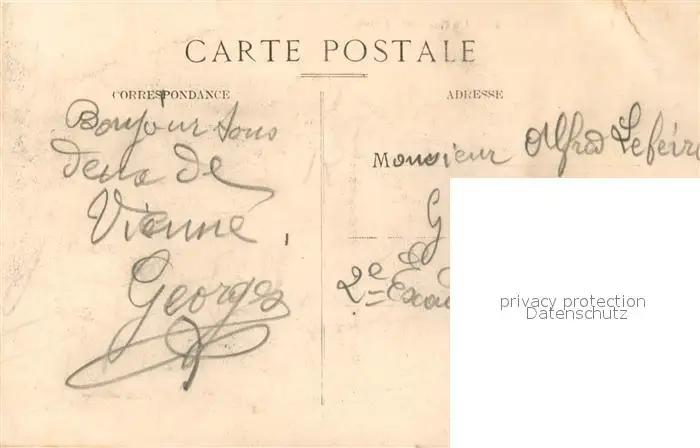 CARTE POSTALE
CORRESPONDANCE
ADRESSE
Bonjour tous
deux de
Vienne,
Georges
Monsieur Alfred Lefèvr
G
2e
privacy protection
Datenschutz